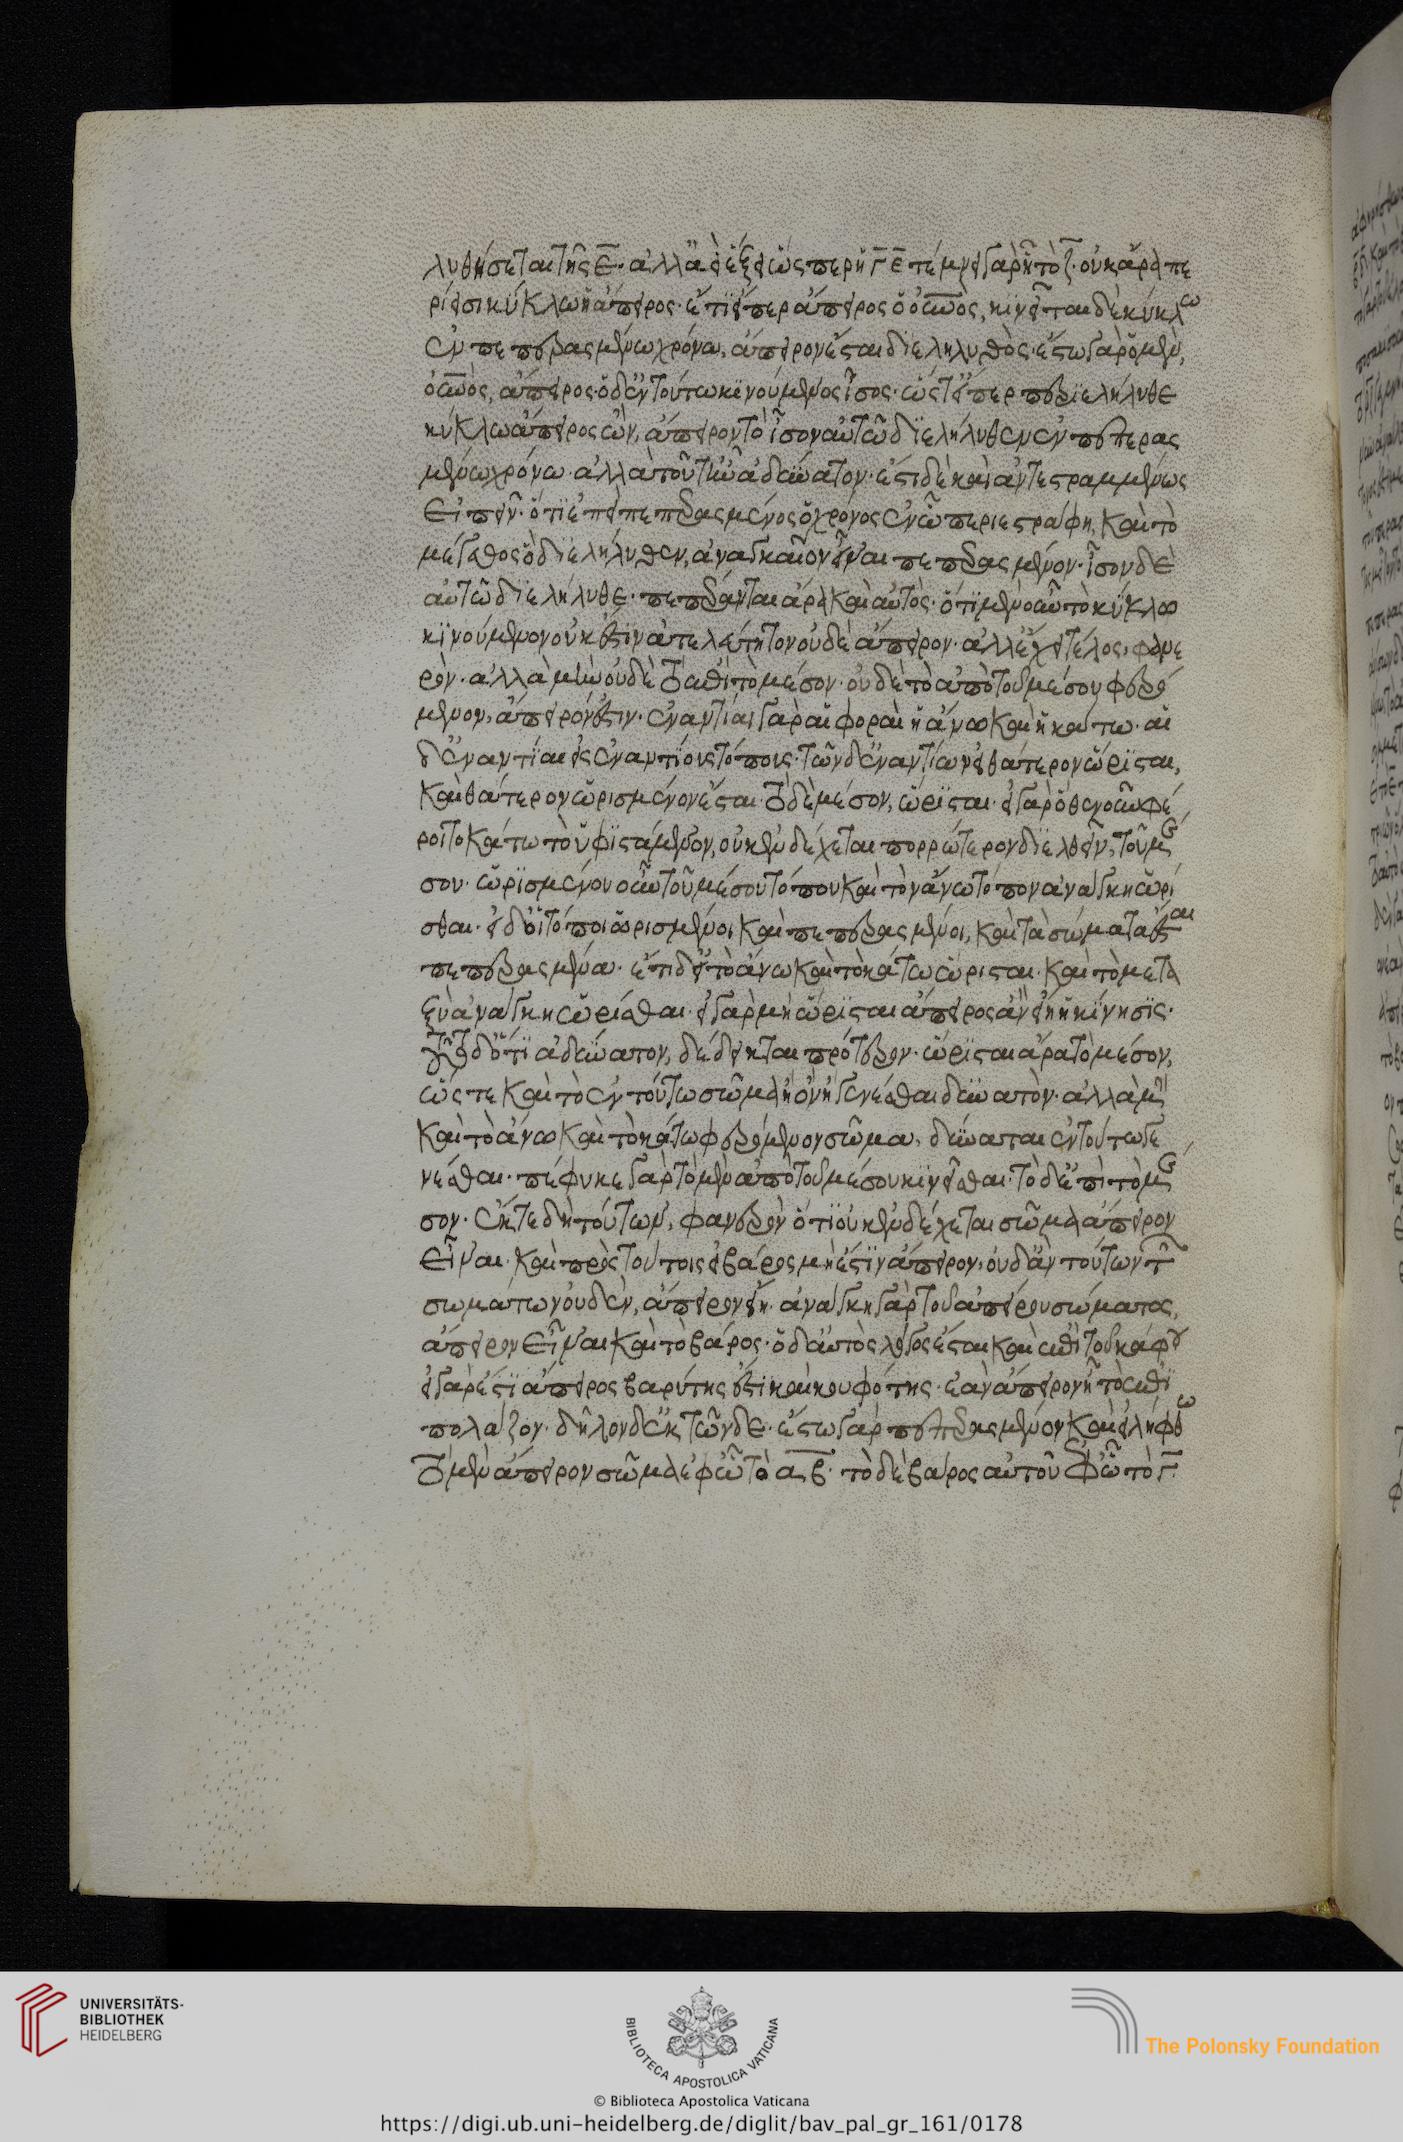 λυθήσεται τῆς ε̅· ἀλλὰ ἀεὶ ἕξει ὥσπερ ἡ γ̅ε̅ τέμνει γὰρ ᾗ τὸ ζ̅· οὐκ ἄρα πε
ρίεισι κύκλω ἡ ἄπειρος· ἔτι εἴπερ ἄπειρος ὁ οὐνος, κινεῖται δὲ κύκλω
ἐν πεπερασμένω χρόνω, ἄπειρον ἔσται διεληλυθὸς· ἔστω γὰρ ὁ μὲν,
οὐνὸς, ἄπειρος· ὁ δ' ἐν τούτω κινούμενος ἴσος· ὥστ' εἴπερ περιελήλυθε
κύκλω ἄπειρος ὢν, ἄπειρον τὸ ἴσον αὐτῶ διελήλυθεν ἐν πεπερασ
μένω χρόνω· ἀλλὰ τοῦτ' ἦν ἀδύνατον· ἔστι δὲ καὶ ἀντεστραμμένως
εἰπεῖν· ὅτι εἰ πεπερασμένος ὁ χρόνος ἐν ᾧ περιεστράφη, καὶ τὸ
μέγεθος ὃ διελήλυθεν, ἀναγκαῖον εἶναι πεπερασμένον· ἴσον δὲ
αὐτῶ διελήλυθε· πεπέρανται ἄρα καὶ αὐτὸς· ὅτι μὲν οὖν τὸ κύκλω
κινούμενον οὐκ ἔστιν ἀτελεύτητον οὐδὲ ἄπειρον· ἀλλ' ἔχει τέλος, φανε
ρόν· ἀλλὰ μὴν οὐδὲ τὸ ἐπὶ τὸ μέσον· οὐδὲ τὸ ἀπὸ τοῦ μέσου φερό
μενον, ἄπειρόν ἐστιν· ἐναντίαι γὰρ αἱ φοραὶ ἡ ἄνω καὶ ἡ κάτω· αἱ
δ' ἐναντίαι εἰς ἐναντίους τόπους· τῶν δ' ἐναντίων εἰ θάτερον ὥρισται,
καὶ θάτερον ὡρισμένον ἔσται· τὸ δὲ μέσον, ὥρισται· εἰ γὰρ ὅθεν οὖν φέ
ροιτο κάτω τὸ ὑφιστάμενον, οὐκ ἐνδέχεται πορρώτερον διελθεῖν, τοῦ μέ
σου· ὡρισμένου οὖν τοῦ μέσου τόπου καὶ τὸν ἄνω τόπον ἀνάγκη ὡρί
σθαι· εἰ δ' οἱ τόποι ὡρισμένοι καὶ πεπερασμένοι, καὶ τὰ σώματα ἔσται
πεπερασμένα· ἔτι δ' εἰ τὸ ἄνω καὶ τὸ κάτω ὥρισται· καὶ τὸ μετα
ξὺ ἀνάγκη ὡρίσθαι· εἰ γὰρ μὴ ὥρισται ἄπειρος ἂν εἴη ἡ κίνησις·
τοῦτο δ' ὅτι ἀδύνατον, δέδεικται πρότερον· ὥρισται ἄρα τὸ μέσον,
ὥστε καὶ τὸ ἐν τούτω σῶμα ἢ ὂν ἢ γενέσθαι δυνατὸν· ἀλλὰ μὴν
καὶ τὸ ἄνω καὶ τὸ κάτω φερόμενον σῶμα, δύναται ἐν τούτω γε
νέσθαι· πέφυκε γὰρ τὸ μὲν ἀπὸ τοῦ μέσου κινεῖσθαι· τὸ δ' ἐπὶ τὸ μέ
σον· ἔκ τε δὴ τούτων, φανερὸν ὅτι οὐκ ἐνδέχεται σῶμα ἄπειρον
εἶναι· καὶ πρὸς τούτοις εἰ βάρος μή ἐστιν ἄπειρον, οὐδ' ἂν τούτων τῶν
σωμάτων οὐδὲν, ἄπειρον εἴη· ἀνάγκη γὰρ τοῦ ἀπείρου σώματος,
ἄπειρον εἶναι καὶ τὸ βάρος· ὁ δ' αὐτὸς λόγος ἔσται καὶ ἐπὶ τοῦ κούφου
εἰ γάρ ἐστι ἄπειρος βαρύτης ἔστι καὶ κουφότης· ἐὰν ἄπειρον ᾖ τὸ ἐπι
πολάζον· δῆλον δ' ἐκ τῶνδε· ἔστω γὰρ πεπερασμένον καὶ εἰλήφθω
τὸ μὲν ἄπειρον σῶμα ἐφ' ᾧ τὸ α̅β̅· τὸ δὲ βάρος αὐτοῦ ἐφ' ᾧ τὸ γ̅
UNIVERSITÄTS-
BIBLIOTHEK
HEIDELBERG
BIBLIOTECA APOSTOLICA VATICANA
The Polonsky Foundation
© Biblioteca Apostolica Vaticana
https://digi.ub.uni-heidelberg.de/diglit/bav_pal_gr_161/0178